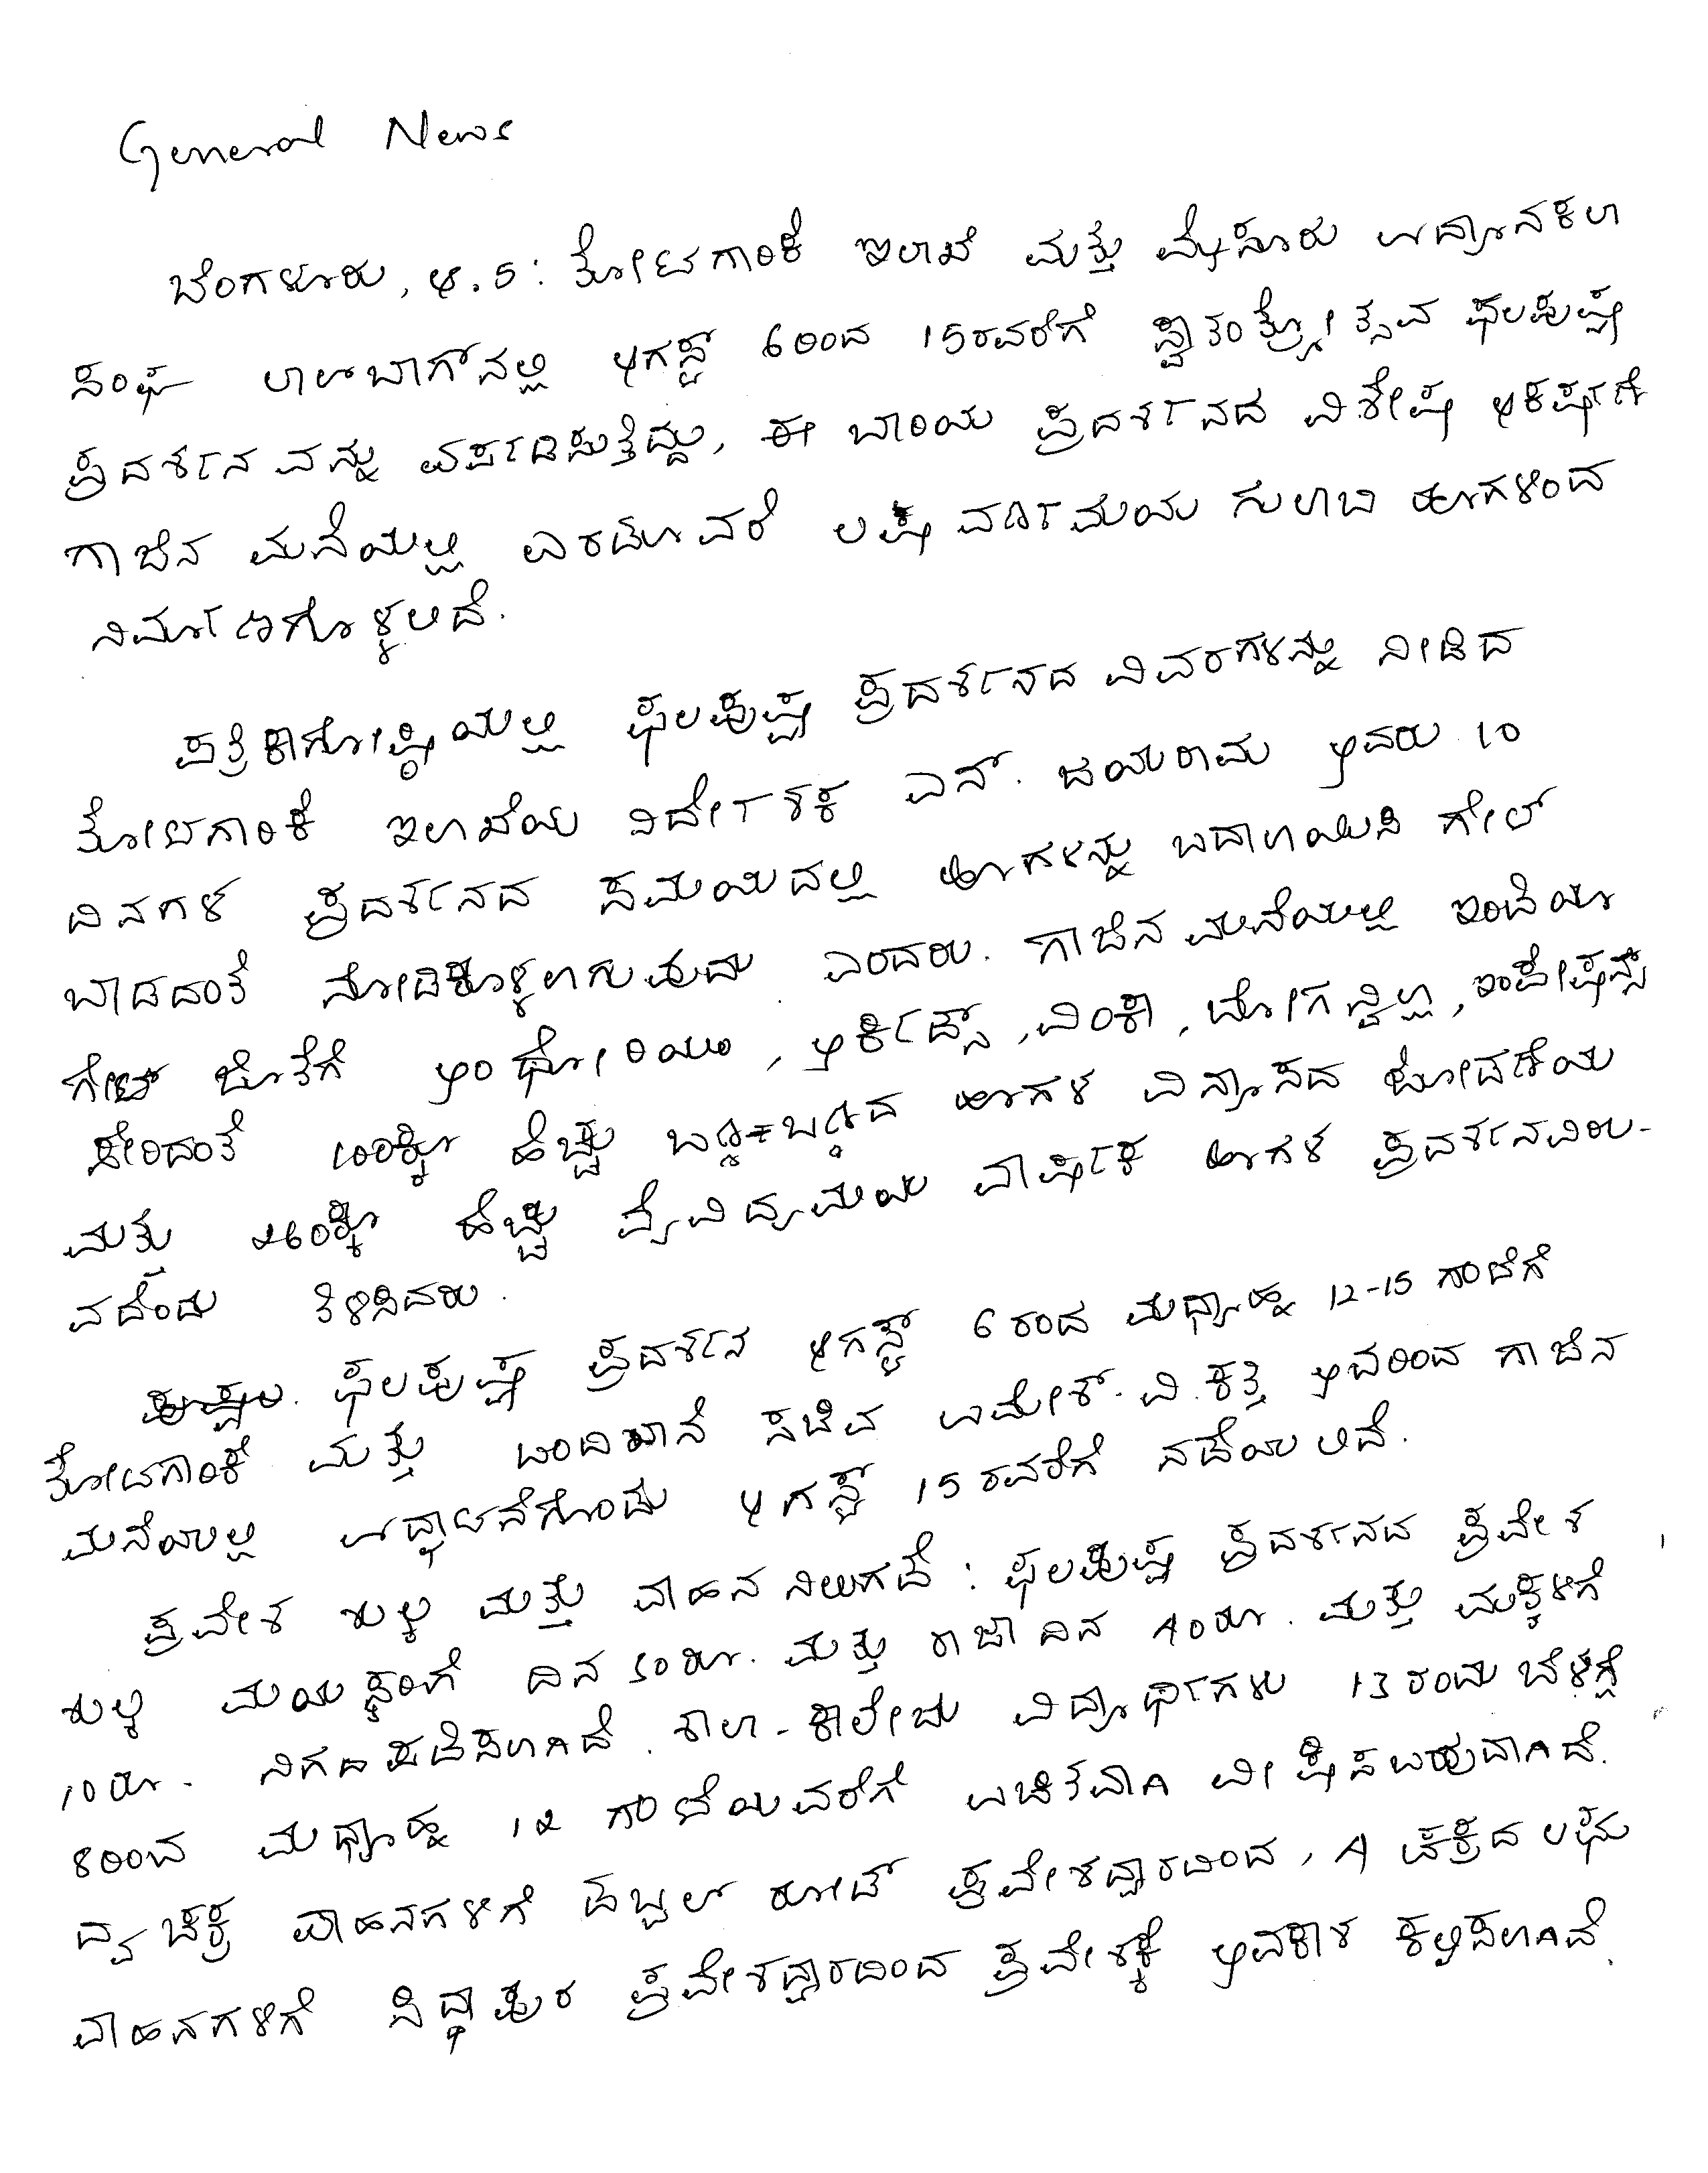 General News
ಬೆಂಗಳೂರು, ಆ.5: ತೋಟಗಾರಿಕೆ ಇಲಾಖೆ ಮತ್ತು ಮೈಸೂರು ಉದ್ಯಾನಕಲಾ
ಸಂಘ ಲಾಲ್‌ಬಾಗ್‌ನಲ್ಲಿ ಆಗಸ್ಟ್ 6ರಿಂದ 15ರವರೆಗೆ ಸ್ವಾತಂತ್ರ್ಯೋತ್ಸವ ಫಲಪುಷ್ಪ
ಪ್ರದರ್ಶನವನ್ನು ಏರ್ಪಡಿಸುತ್ತಿದ್ದು, ಈ ಬಾರಿಯ ಪ್ರದರ್ಶನದ ವಿಶೇಷ ಆಕರ್ಷಣೆ
ಗಾಜಿನ ಮನೆಯಲ್ಲಿ ಎರಡೂವರೆ ಲಕ್ಷ ವರ್ಣಮಯ ಗುಲಾಬಿ ಹೂಗಳಿಂದ
ನಿರ್ಮಾಣಗೊಳ್ಳಲಿದೆ.
ಪತ್ರಿಕಾಗೋಷ್ಠಿಯಲ್ಲಿ ಫಲಪುಷ್ಪ ಪ್ರದರ್ಶನದ ವಿವರಗಳನ್ನು ನೀಡಿದ
ತೋಟಗಾರಿಕೆ ಇಲಾಖೆಯ ನಿರ್ದೇಶಕ ಎನ್. ಜಯರಾಮ ಅವರು 10
ದಿನಗಳ ಪ್ರದರ್ಶನದ ಸಮಯದಲ್ಲಿ ಹೂಗಳನ್ನು ಬದಾಲಯಿಸಿ ಗೇಲ್
ಬಾಡದಂತೆ ನೋಡಿಕೊಳ್ಳಲಾಗುವುದು ಎಂದರು. ಗಾಜಿನ ಮನೆಯಲ್ಲಿ ಇಂಡಿಯಾ
ಗೇಟ್ ಜೊತೆಗೆ ಆಂಥೋರಿಯಂ, ಆರ್ಕಿಡ್ಸ್, ವಿಂಕಾ, ಬೋಗನ್ವಿಲ್ಲಾ, ಇಂಪೇಷನ್ಸ್
ಸೇರಿದಂತೆ 100ಕ್ಕೂ ಹೆಚ್ಚು ಬಣ್ಣ-ಬಣ್ಣದ ಹೂಗಳ ವಿನ್ಯಾಸದ ಜೋಡಣೆಯ
ಮತ್ತು 260ಕ್ಕೂ ಹೆಚ್ಚು ವೈವಿಧ್ಯಮಯ ವಾರ್ಷಿಕ ಹೂಗಳ ಪ್ರದರ್ಶನವಿರು-
ವದೆಂದು ತಿಳಿಸಿದರು.
ಫಲಪುಷ್ಪ ಪ್ರದರ್ಶನ ಆಗಸ್ಟ್ 6ರಂದ ಮಧ್ಯಾಹ್ನ 12-15 ಗಂಟೆಗೆ
ತೋಟಗಾರಿಕೆ ಮತ್ತು ಬಂದಿಖಾನೆ ಸಚಿವ ಉಮೇಶ್. ವಿ. ಕತ್ತಿ ಅವರಿಂದ ಗಾಜಿನ
ಮನೆಯಲ್ಲಿ ಉದ್ಘಾಟನೆಗೊಂಡು ಆಗಸ್ಟ್ 15ರವರೆಗೆ ನಡೆಯಲಿದೆ.
ಪ್ರವೇಶ ಶುಲ್ಕ ಮತ್ತು ವಾಹನ ನಿಲುಗಡೆ: ಫಲಪುಷ್ಪ ಪ್ರದರ್ಶನದ ಪ್ರವೇಶ
ಶುಲ್ಕ ವಯಸ್ಕರಿಗೆ ದಿನ 30ರೂ. ಮತ್ತು ರಾಜಾ ದಿನ 40ರೂ. ಮತ್ತು ಮಕ್ಕಳಿಗೆ
10ರೂ. ನಿಗದಿಪಡಿಸಲಾಗಿದೆ. ಶಾಲಾ-ಕಾಲೇಜು ವಿದ್ಯಾರ್ಥಿಗಳು 13ರಂದು ಬೆಳಗ್ಗೆ
8ರಿಂದ ಮಧ್ಯಾಹ್ನ 12 ಗಂಟೆಯವರೆಗೆ ಉಚಿತವಾಗಿ ವೀಕ್ಷಿಸಬಹುದಾಗಿದೆ.
ದ್ವಿಚಕ್ರ ವಾಹನಗಳಿಗೆ ಡಬ್ಬಲ್ ರೋಡ್ ಪ್ರವೇಶದ್ವಾರದಿಂದ, 4 ಚಕ್ರದ ಲಘು
ವಾಹನಗಳಿಗೆ ಸಿದ್ಧಾಪುರ ಪ್ರವೇಶದ್ವಾರದಿಂದ ಪ್ರವೇಶಕ್ಕೆ ಅವಕಾಶ ಕಲ್ಪಿಸಲಾಗಿದೆ.